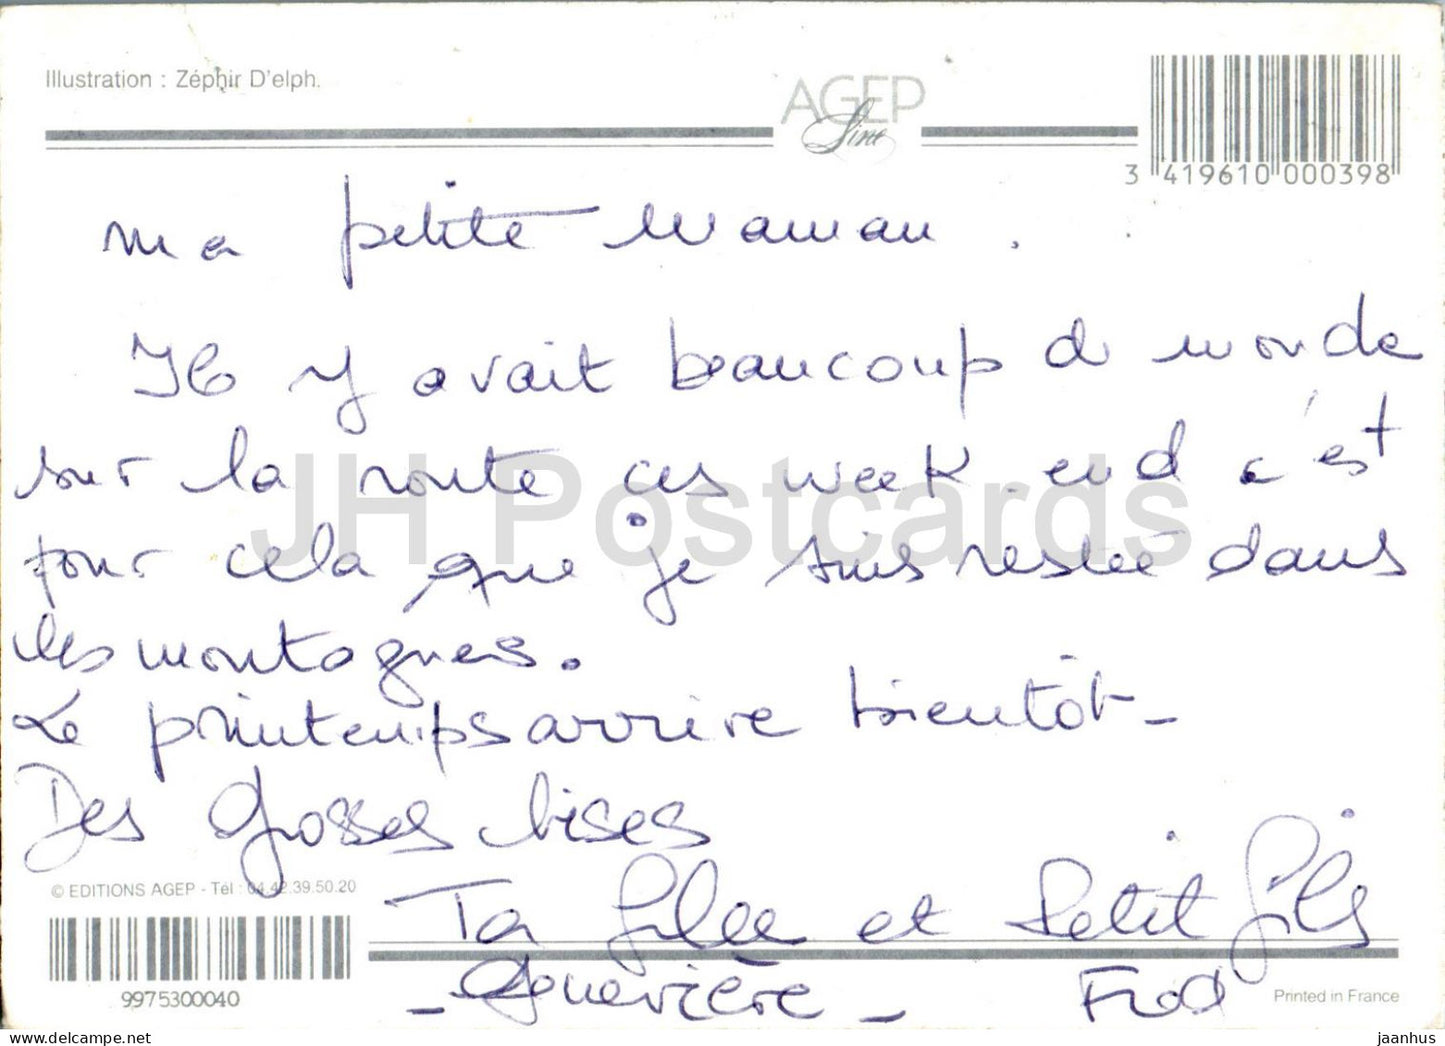 Illustration : Zéphir D'elph.
AGEP
Line
3 419610 000398
ma petite maman.
Il y avait beaucoup de monde
sur la route ces week-end c'est
pour cela que je suis restée dans
les montagnes.
Le printemps arrive bientôt -
Des Grosses bises
© EDITIONS AGEP - Tél : 04.42.39.50.20
Ta fille et Petit fils
- Geneviève - Fred
9975300040
Printed in France
JH Postcards
jaanhus